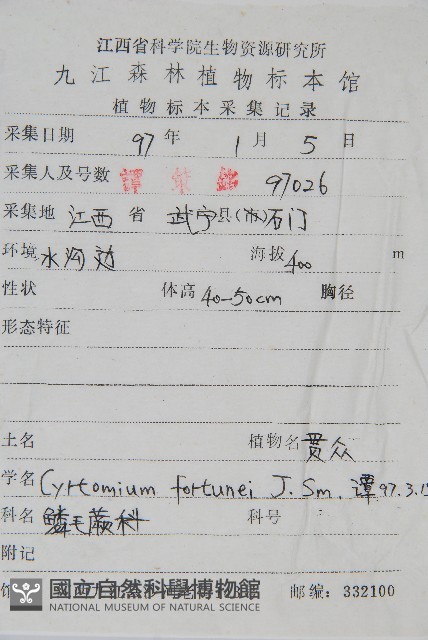 江西省科学院生物资源研究所
九江森林植物标本馆
植物标本采集记录
采集日期 97 年 1 月 5 日
采集人及号数 譚 97026
采集地 江西 省 武宁县(市)石门
环境 水沟边 海拔 400 m
性状 体高 40-50cm 胸径
形态特征
土名 植物名 贯众
学名 Cyrtomium fortunei J. Sm. 谭 97.3.
科名 鳞毛蕨科 科号
附记
邮编: 332100
國立自然科學博物館
NATIONAL MUSEUM OF NATURAL SCIENCE